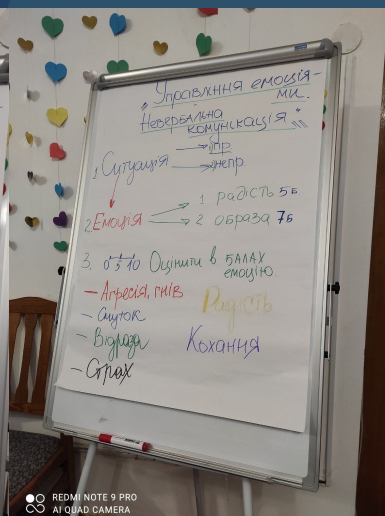 "Управління емоція-
ми.
Невербальна
комунікація"
1. Ситуація → пр.
→ непр.
2. Емоція → 1 радість 5б
→ 2 образа 7б
3. 0 5 10 Оцінити в балах
емоцію.
– Агресія, гнів
Радість
– Смуток
– Відраза
Кохання
– Страх
REDMI NOTE 9 PRO
AI QUAD CAMERA